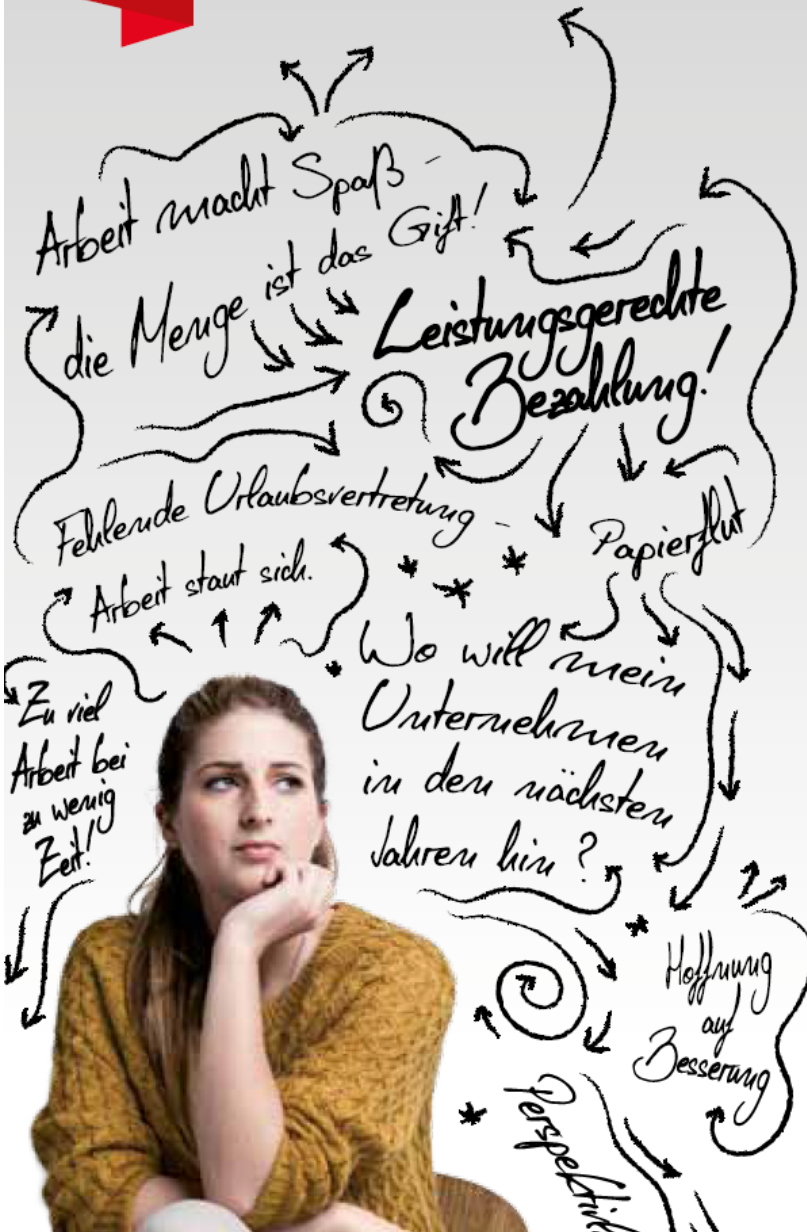 Arbeit macht Spaß -
die Menge ist das Gift!
Leistungsgerechte
Bezahlung!
Fehlende Urlaubsvertretung -
Arbeit staut sich.
Papierflut
Wo will mein
Unternehmen
in den nächsten
Jahren hin?
Zu viel
Arbeit bei
zu wenig
Zeit!
Hoffnung
auf
Besserung